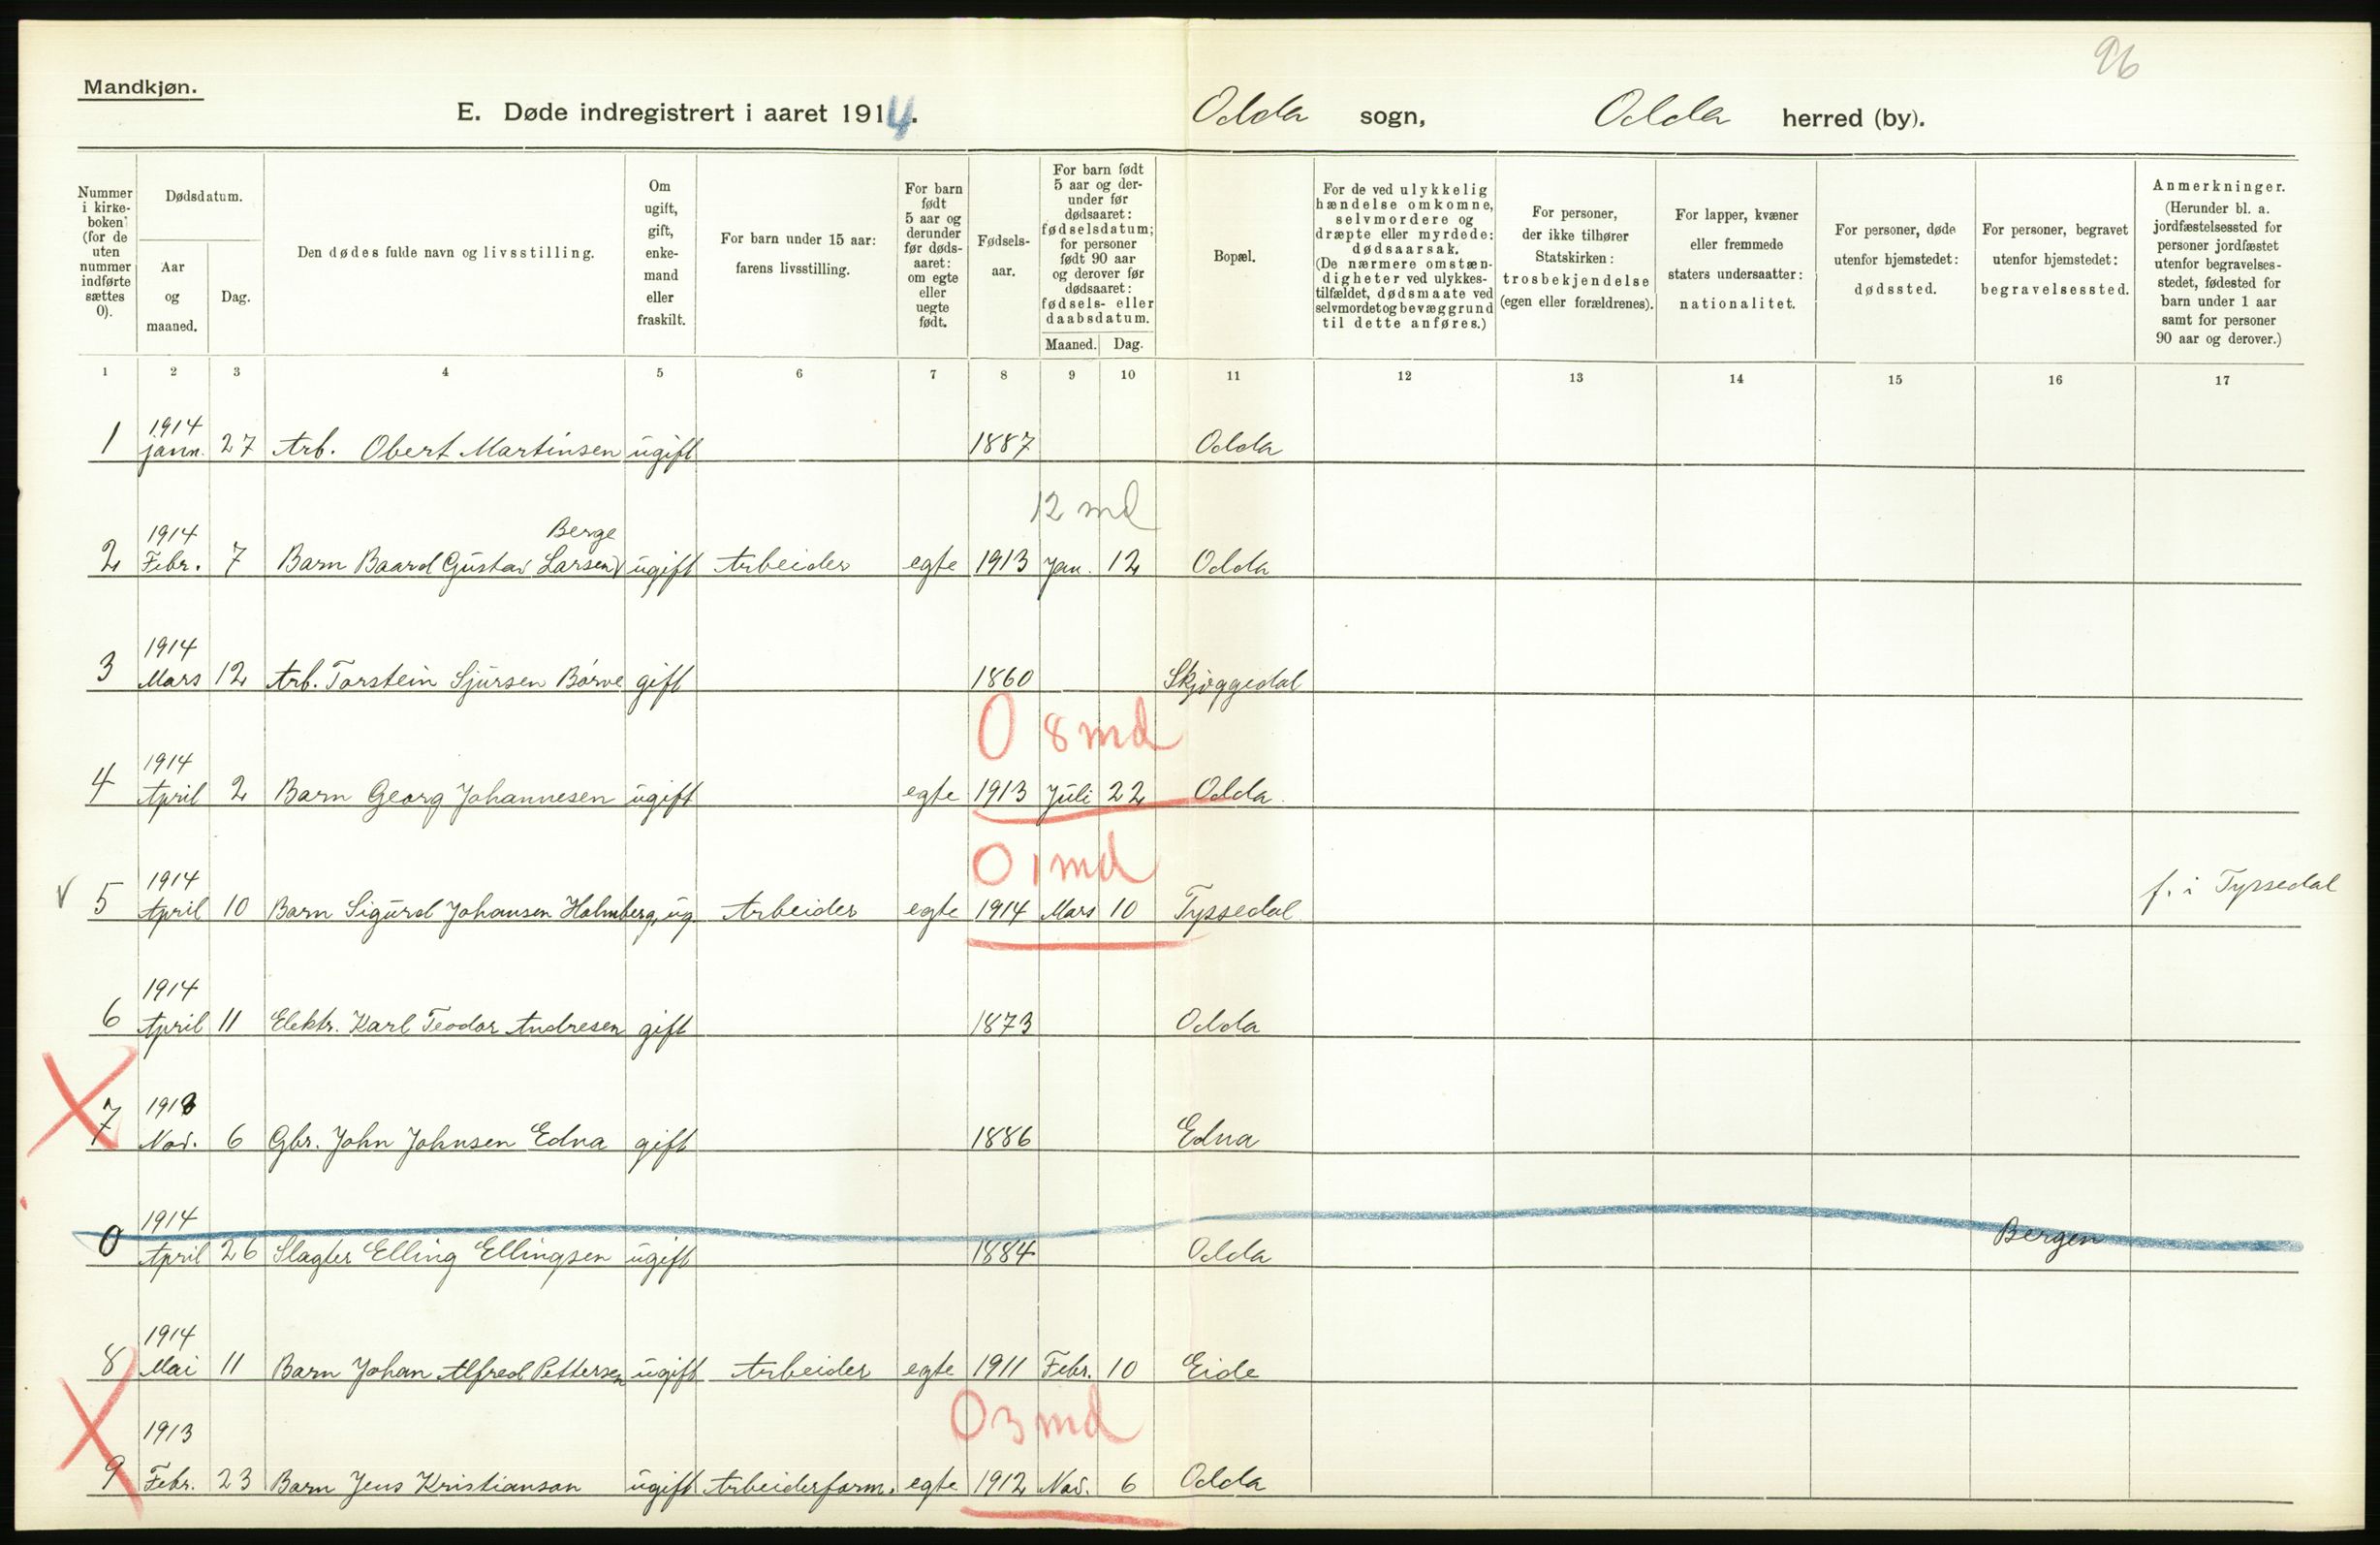 96
Mandkjøn.
E. Døde indregistrert i aaret 1914. Odda sogn, Odda herred (by).
Nummer i kirkeboken (for de uten nummer indførte sættes 0).
Dødsdatum.
Aar og maaned.
Dag.
Den dødes fulde navn og livsstilling.
Om ugift, gift, enkemand eller fraskilt.
For barn under 15 aar: farens livsstilling.
For barn født 5 aar og derunder før dødsaaret: om egte eller uegte født.
Fødselsaar.
For barn født 5 aar og derunder før dødsaaret: fødselsdatum; for personer født 90 aar og derover før dødsaaret: fødsels- eller daabsdatum.
Maaned. Dag.
Bopæl.
For de ved ulykkelig hændelse omkomne, selvmordere og dræpte eller myrdede: dødsaarsak. (De nærmere omstændigheter ved ulykkestilfældet, dødsmaate ved selvmordet og bevæggrund til dette anføres.)
For personer, der ikke tilhører Statskirken: trosbekjendelse (egen eller forældrenes).
For lapper, kvæner eller fremmede staters undersaatter: nationalitet.
For personer, døde utenfor hjemstedet: dødssted.
For personer, begravet utenfor hjemstedet: begravelsessted.
Anmerkninger. (Herunder bl. a. jordfæstelsessted for personer jordfæstet utenfor begravelsesstedet, fødested for barn under 1 aar samt for personer 90 aar og derover.)
1 2 3 4 5 6 7 8 9 10 11 12 13 14 15 16 17
1914
1 jann. 27 Arb. Obert Martinsen ugift 1887 Odda
12 md
1914 Berge
2 Febr. 7 Barn Baard Gustav Larsen ugift Arbeider egte 1913 Jan. 12 Odda
1914
3 Mars 12 Arb. Torstein Sjursen Børve gift 1860 Skjøggedal
0 8 md
1914
4 April 2 Barn Georg Johannesen ugift egte 1913 Juli 22 Odda
0 1 md
1914
v 5 April 10 Barn Sigurd Johansen Holmberg, ug. Arbeider egte 1914 Mars 10 Tyssedal. f. i Tyssedal
1914
6 April 11 Elektr. Karl Teodor Andresen gift 1873 Odda
1913
7 Nov. 6 Gbr. John Johnsen Edna gift 1886 Edna
1914
0 April 26 Slagter Elling Ellingsen ugift 1884 Odda Bergen
1914
8 Mai 11 Barn Johan Alfred Pettersen ugift Arbeider egte 1911 Febr. 10 Eide
0 3 md
1913
9 Febr. 23 Barn Jens Kristianson ugift Arbeiderform. egte 1912 Nov. 6 Odda